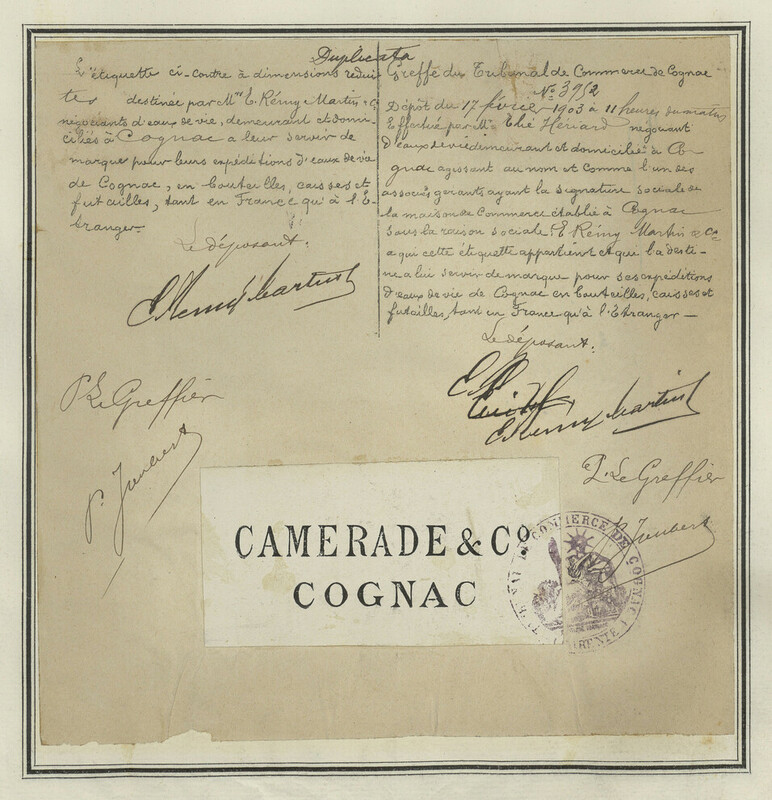 Duplicata
L'étiquette ci-contre à dimensions rédui
tes destinée par Mrs E. Rémy Martin & Cie
négociants d'eaux de vie, demeurant et domi-
ciliés à Cognac a leur servir de
marque pour leurs expéditions d'eaux de vie
de Cognac, en bouteilles, caisses et
futailles, tant en France qu'à l'É-
tranger.
Le déposant:
E. Remy Martin & Co
P. Le Greffier
P. Joubert
Greffe du Tribunal de Commerce de Cognac
No 3962
Dépôt du 17 février 1903 à 11 heures du matin
Effectué par Mr Elié Hériard négociant
d'eaux de vie demeurant et domicilié à Co-
gnac agissant au nom et comme l'un des
associés gérants ayant la signature sociale de
la maison de Commerce établie à Cognac
sous la raison sociale: E. Rémy Martin & Co
a qui cette étiquette appartient et qui l'a desti-
né a lui servir de marque pour ses expéditions
d'eaux de vie de Cognac en bouteilles, caisses et
futailles, tant en France qu'à l'Etranger —
Le déposant:
E. Remy Martin & Co
P. Le Greffier
P. Joubert
CAMERADE & Co
COGNAC
COMMERCE DE COGNAC
CHARENTE